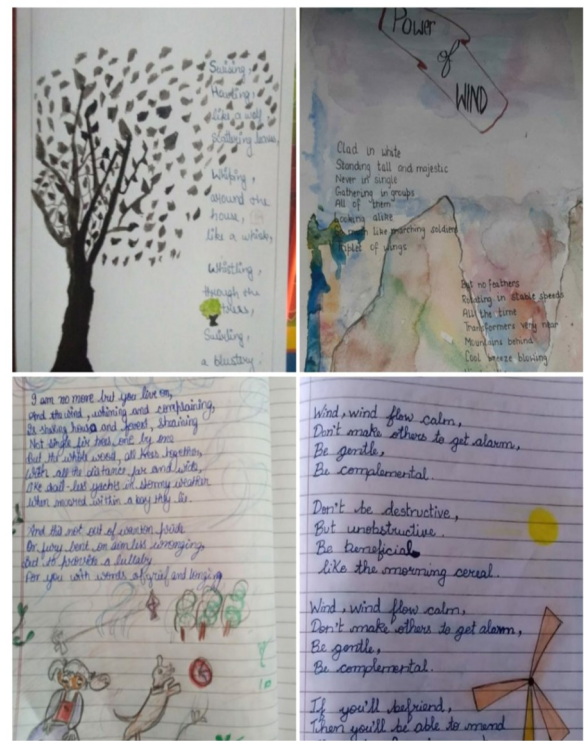 Swising,
Howling,
like a wolf
Scattering leaves,
Whiping,
around the
house,
like a whisk,
Whistling,
through the
trees,
Swirling,
a blustery.
Power
of
WIND
Clad in white
Standing tall and majestic
Never in single
Gathering in groups
All of them
Looking alike
much like marching soldiers
Triplet of wings
But no feathers
Rotating in stable speeds
All the time
Transformers very near
Mountains behind
Cool breeze blowing
I am no more but you live on,
And the wind, whining and complaining,
Is shaking house and forest, straining
Not single fir trees one by one
But the whole wood, all trees together,
With all the distance far and wide,
Like sail-less yachts in stormy weather
When moored within a bay they lie.
And this not out of wanton pride
Or fury bent on aimless wronging,
But to provide a lullaby
For you with words of grief and longing
Wind, wind flow calm,
Don't make others to get alarm,
Be gentle,
Be complemental.
Don't be destructive,
But unobstructive.
Be beneficial
like the morning cereal.
Wind, wind flow calm,
Don't make others to get alarm,
Be gentle,
Be complemental.
If you'll befriend,
Then you'll be able to mend